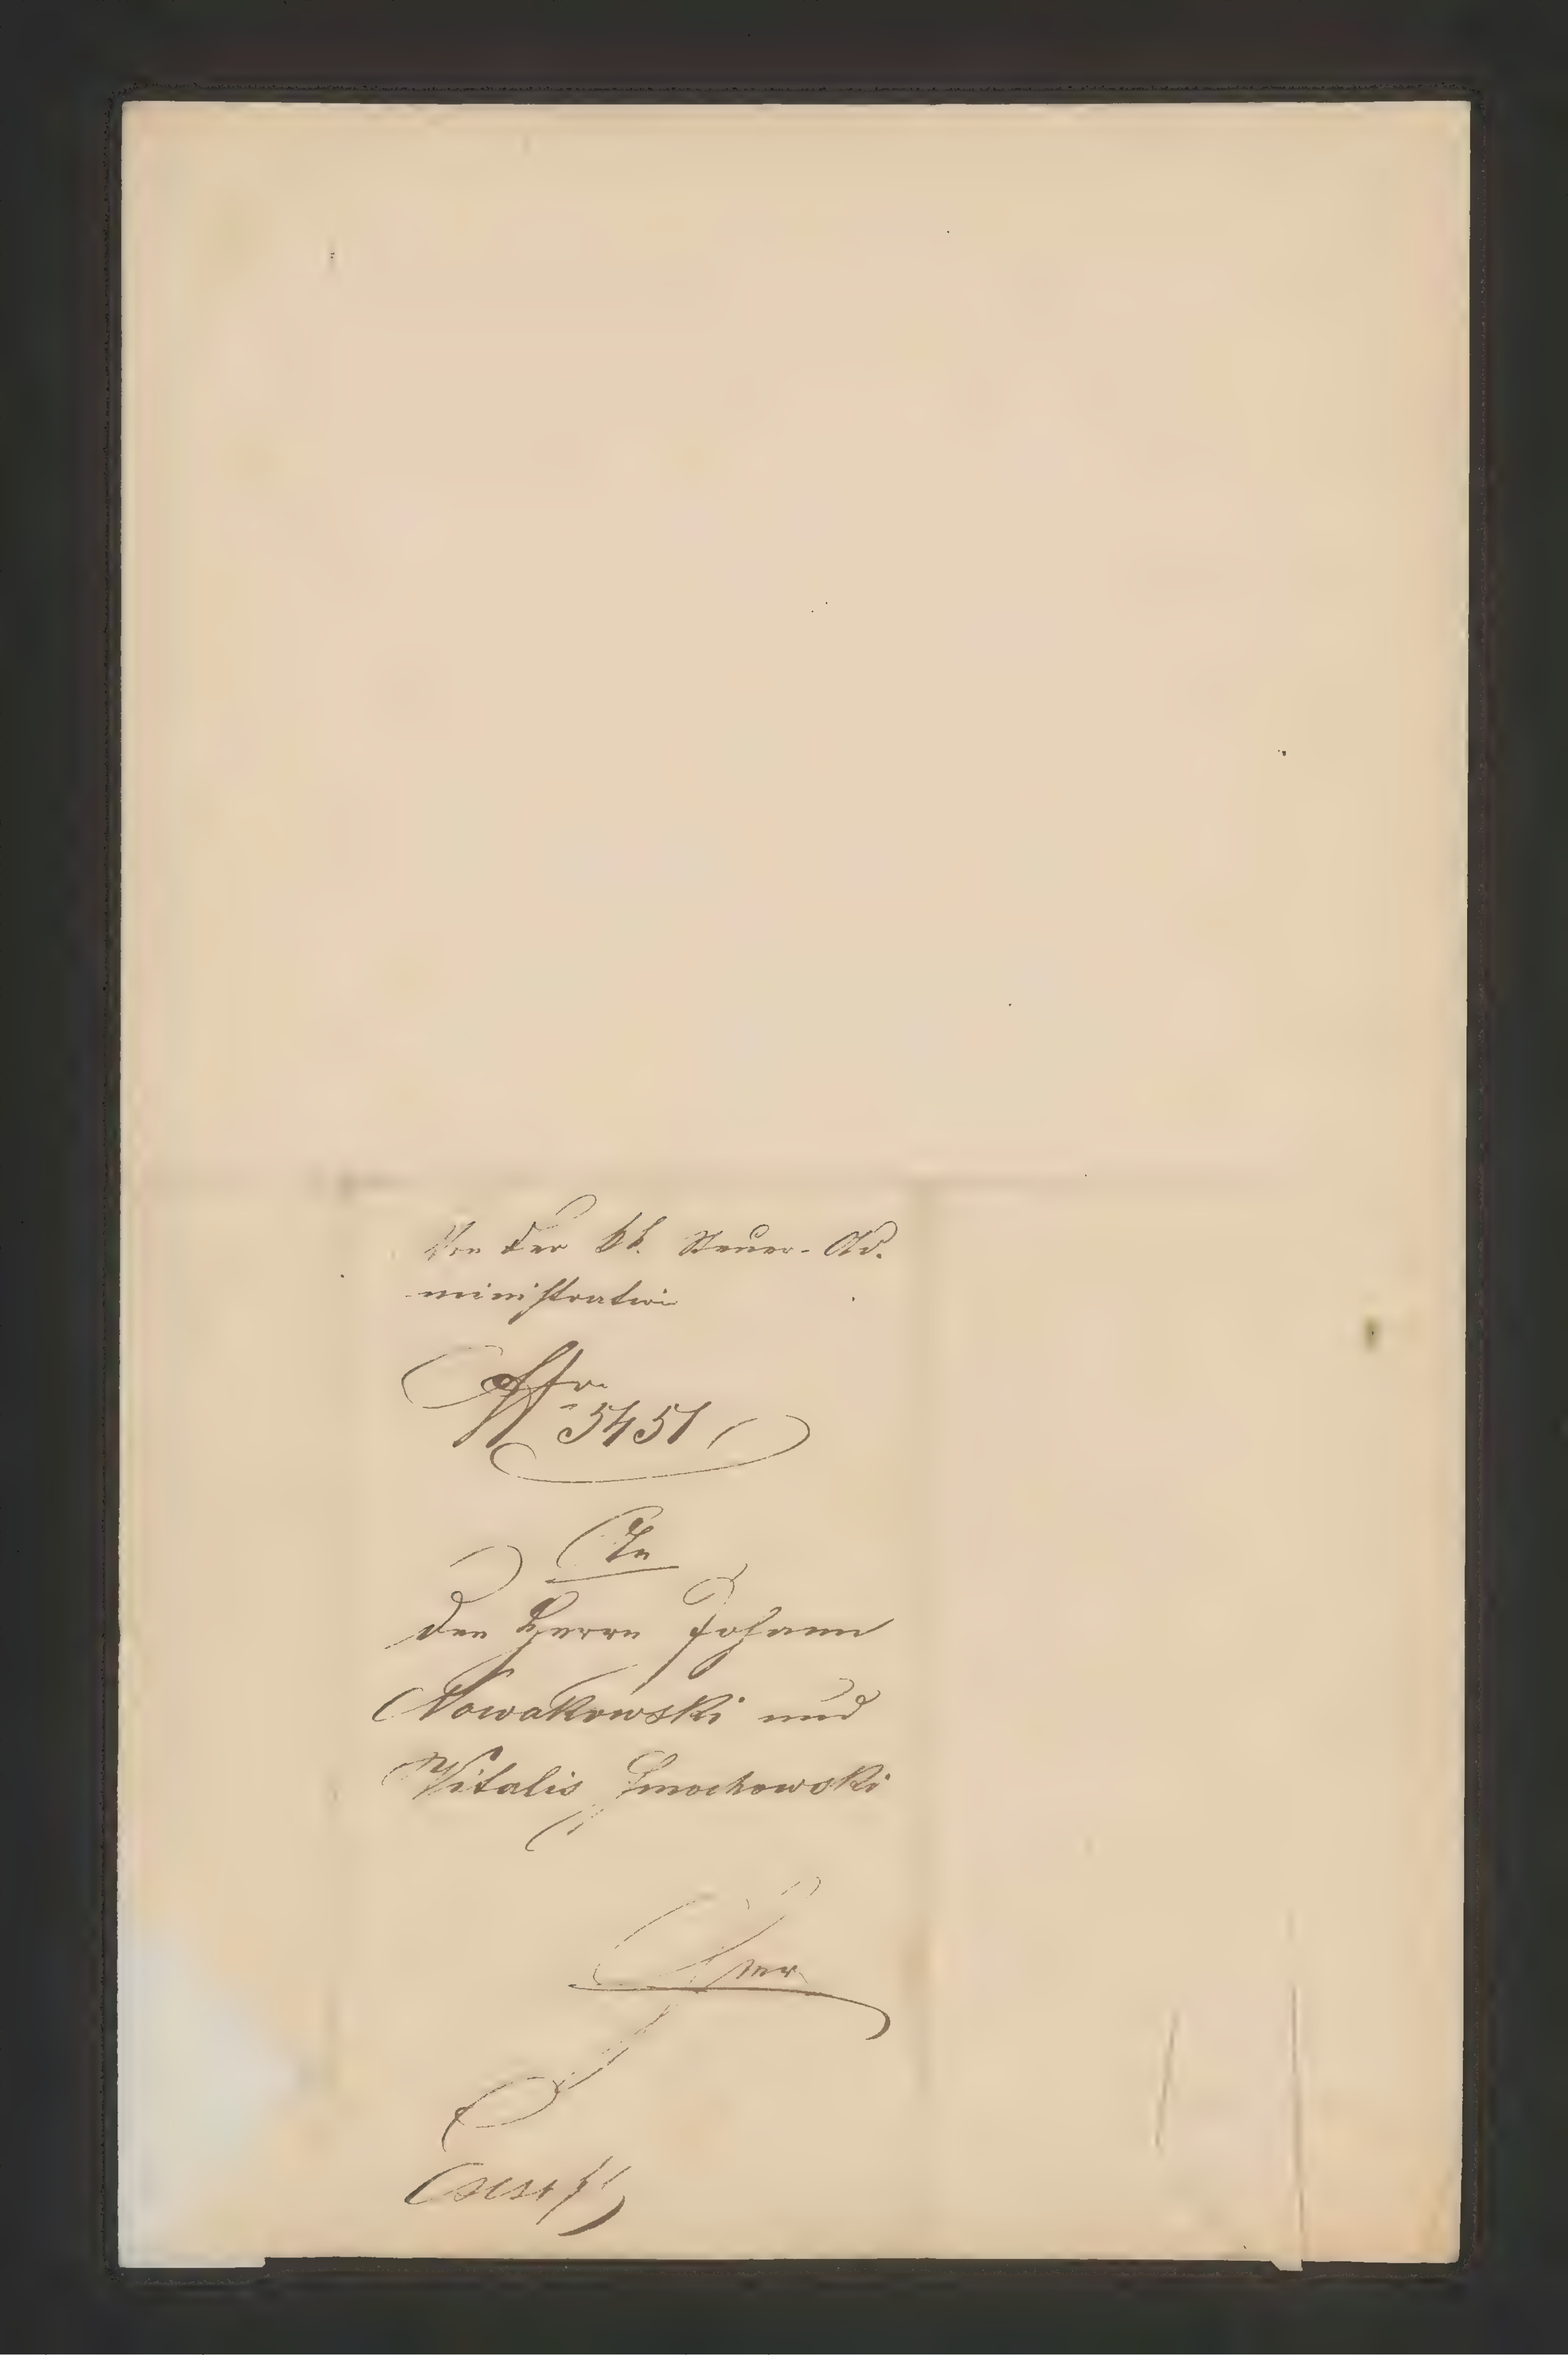 Von der k k. Steuer-Ad-
ministration
Nro 5451
An
den Herrn Johann
Nowakowski und
Vitalis Smochowski
hier